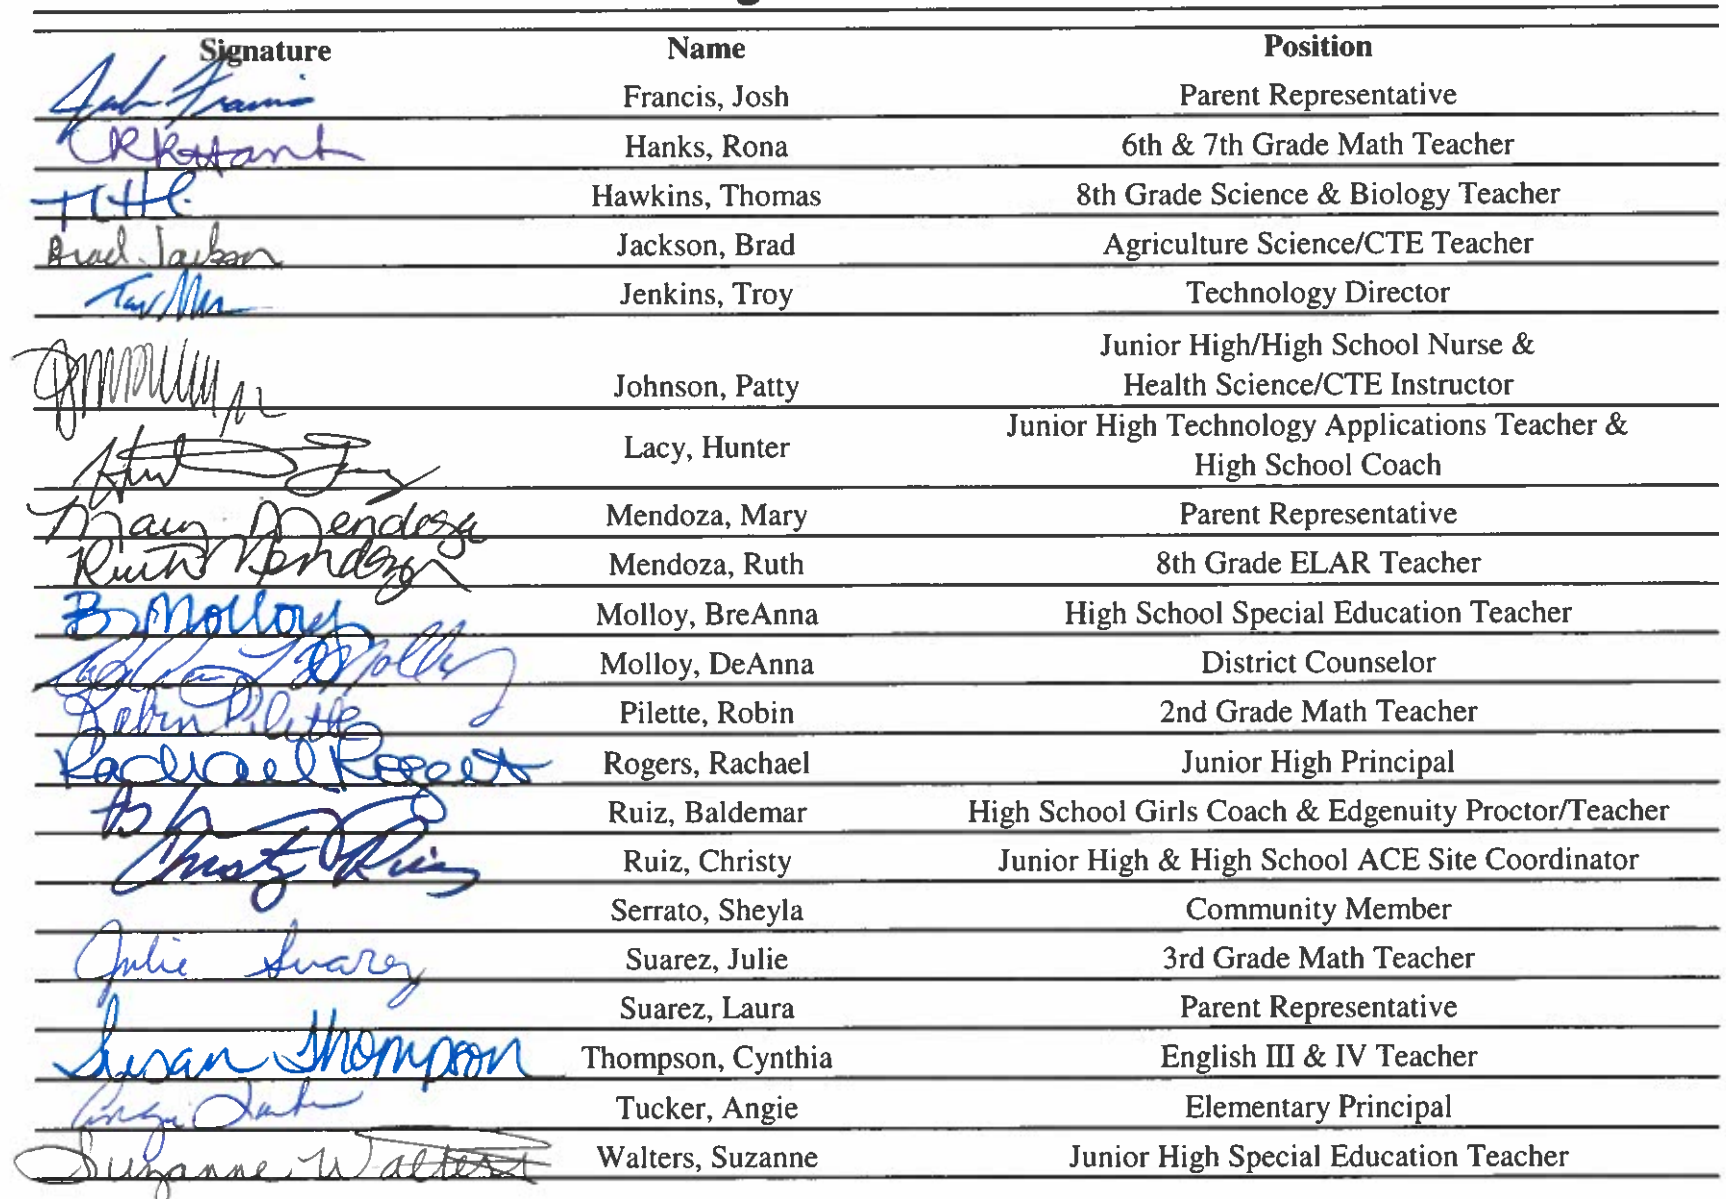 Signature Name Position
Josh Francis Francis, Josh Parent Representative
Hanks, Rona 6th & 7th Grade Math Teacher
Hawkins, Thomas 8th Grade Science & Biology Teacher
Brad Jackson Jackson, Brad Agriculture Science/CTE Teacher
Jenkins, Troy Technology Director
Junior High/High School Nurse &
Johnson, Patty Health Science/CTE Instructor
Junior High Technology Applications Teacher &
Lacy, Hunter
High School Coach
Mary Mendoza Mendoza, Mary Parent Representative
Ruth Mendoza Mendoza, Ruth 8th Grade ELAR Teacher
B Molloy Molloy, BreAnna High School Special Education Teacher
Molloy, DeAnna District Counselor
Robin Pilette Pilette, Robin 2nd Grade Math Teacher
Rachael Rogers Rogers, Rachael Junior High Principal
Ruiz, Baldemar High School Girls Coach & Edgenuity Proctor/Teacher
Christy Ruiz Ruiz, Christy Junior High & High School ACE Site Coordinator
Serrato, Sheyla Community Member
Julie Suarez Suarez, Julie 3rd Grade Math Teacher
Suarez, Laura Parent Representative
Susan Thompson Thompson, Cynthia English III & IV Teacher
Angie Tucker Tucker, Angie Elementary Principal
Suzanne Walters Walters, Suzanne Junior High Special Education Teacher